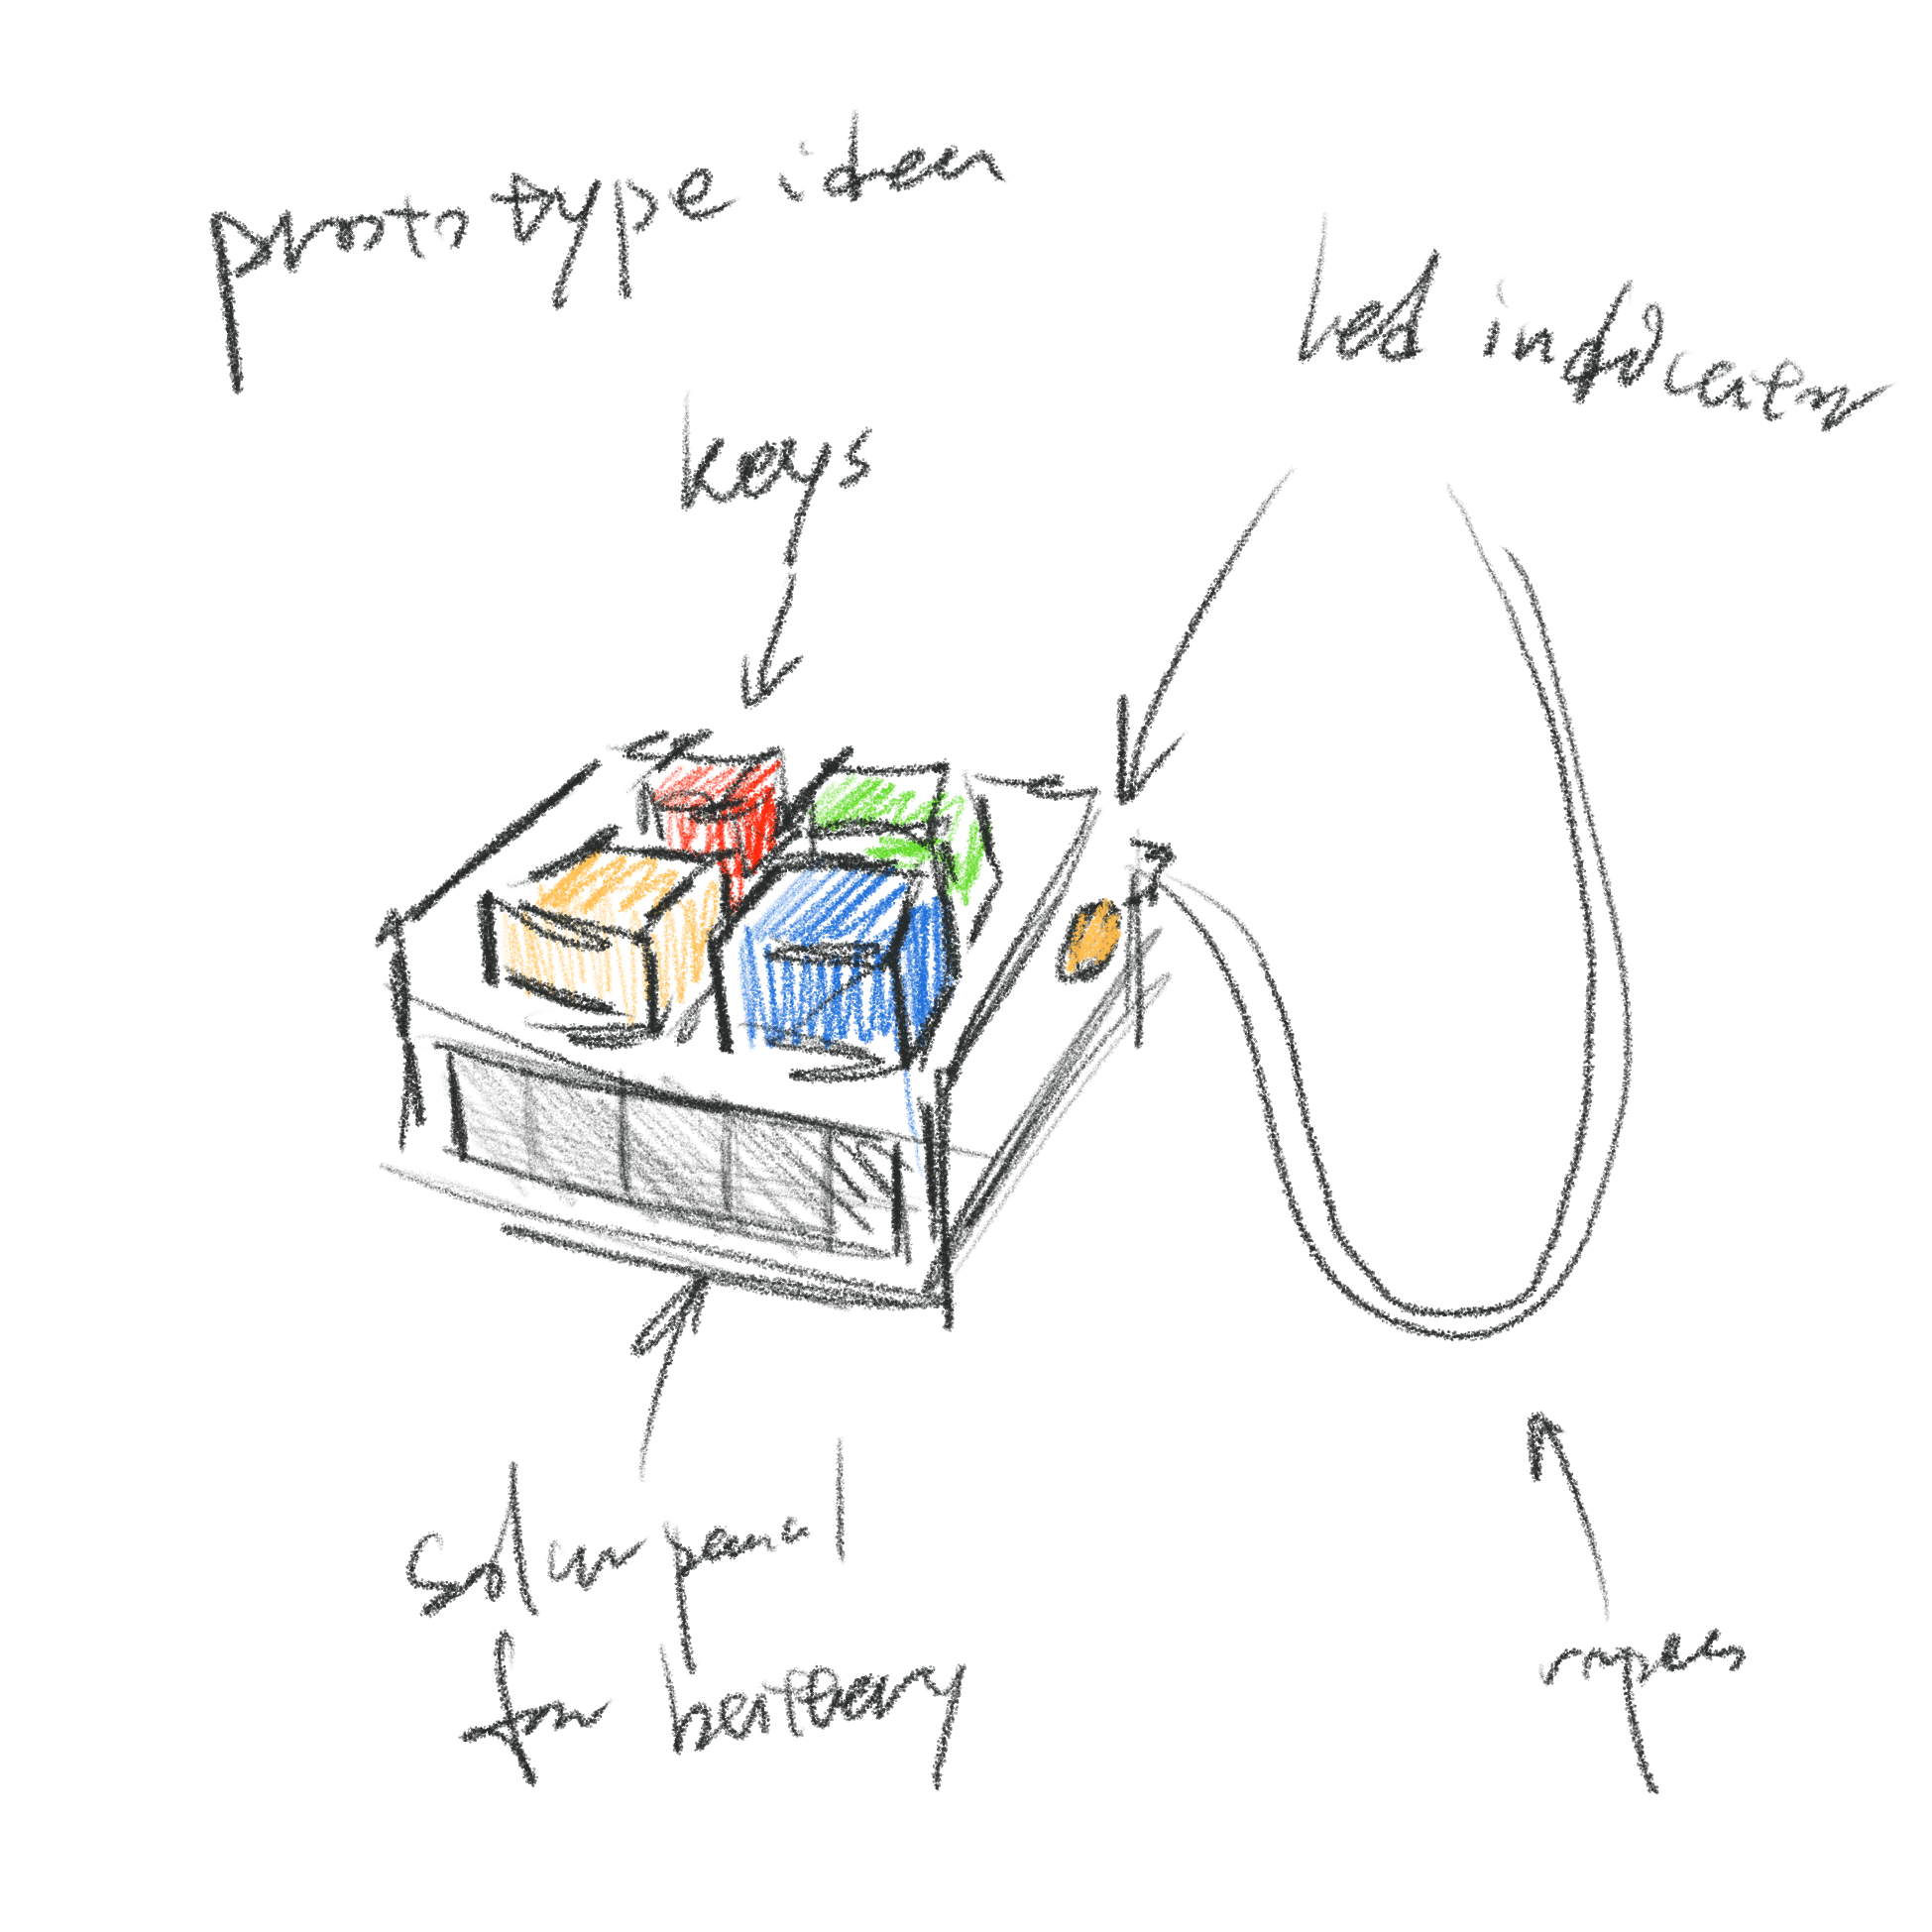 prototype idea
led indicator
keys
solar panel
for battery
ropes